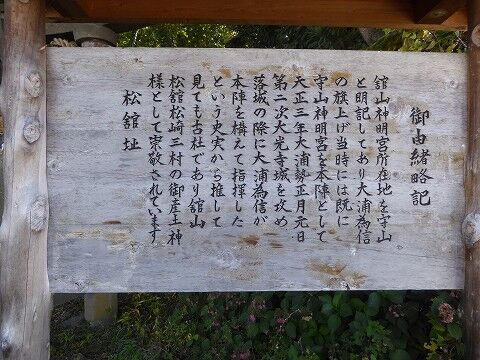 御由緒略記
舘山神明宮所在地を守山
と明記してあり大浦為信
の旗上げ当時には既に
守山神明宮を本陣として
天正三年大浦勢正月元日
第二次大光寺城を攻め
落城の際に大浦為信が
本陣を構えて指揮した
という史実から推して
見ても古社であり舘山
松舘松崎三村の御産土神
様として崇敬されています
松舘址